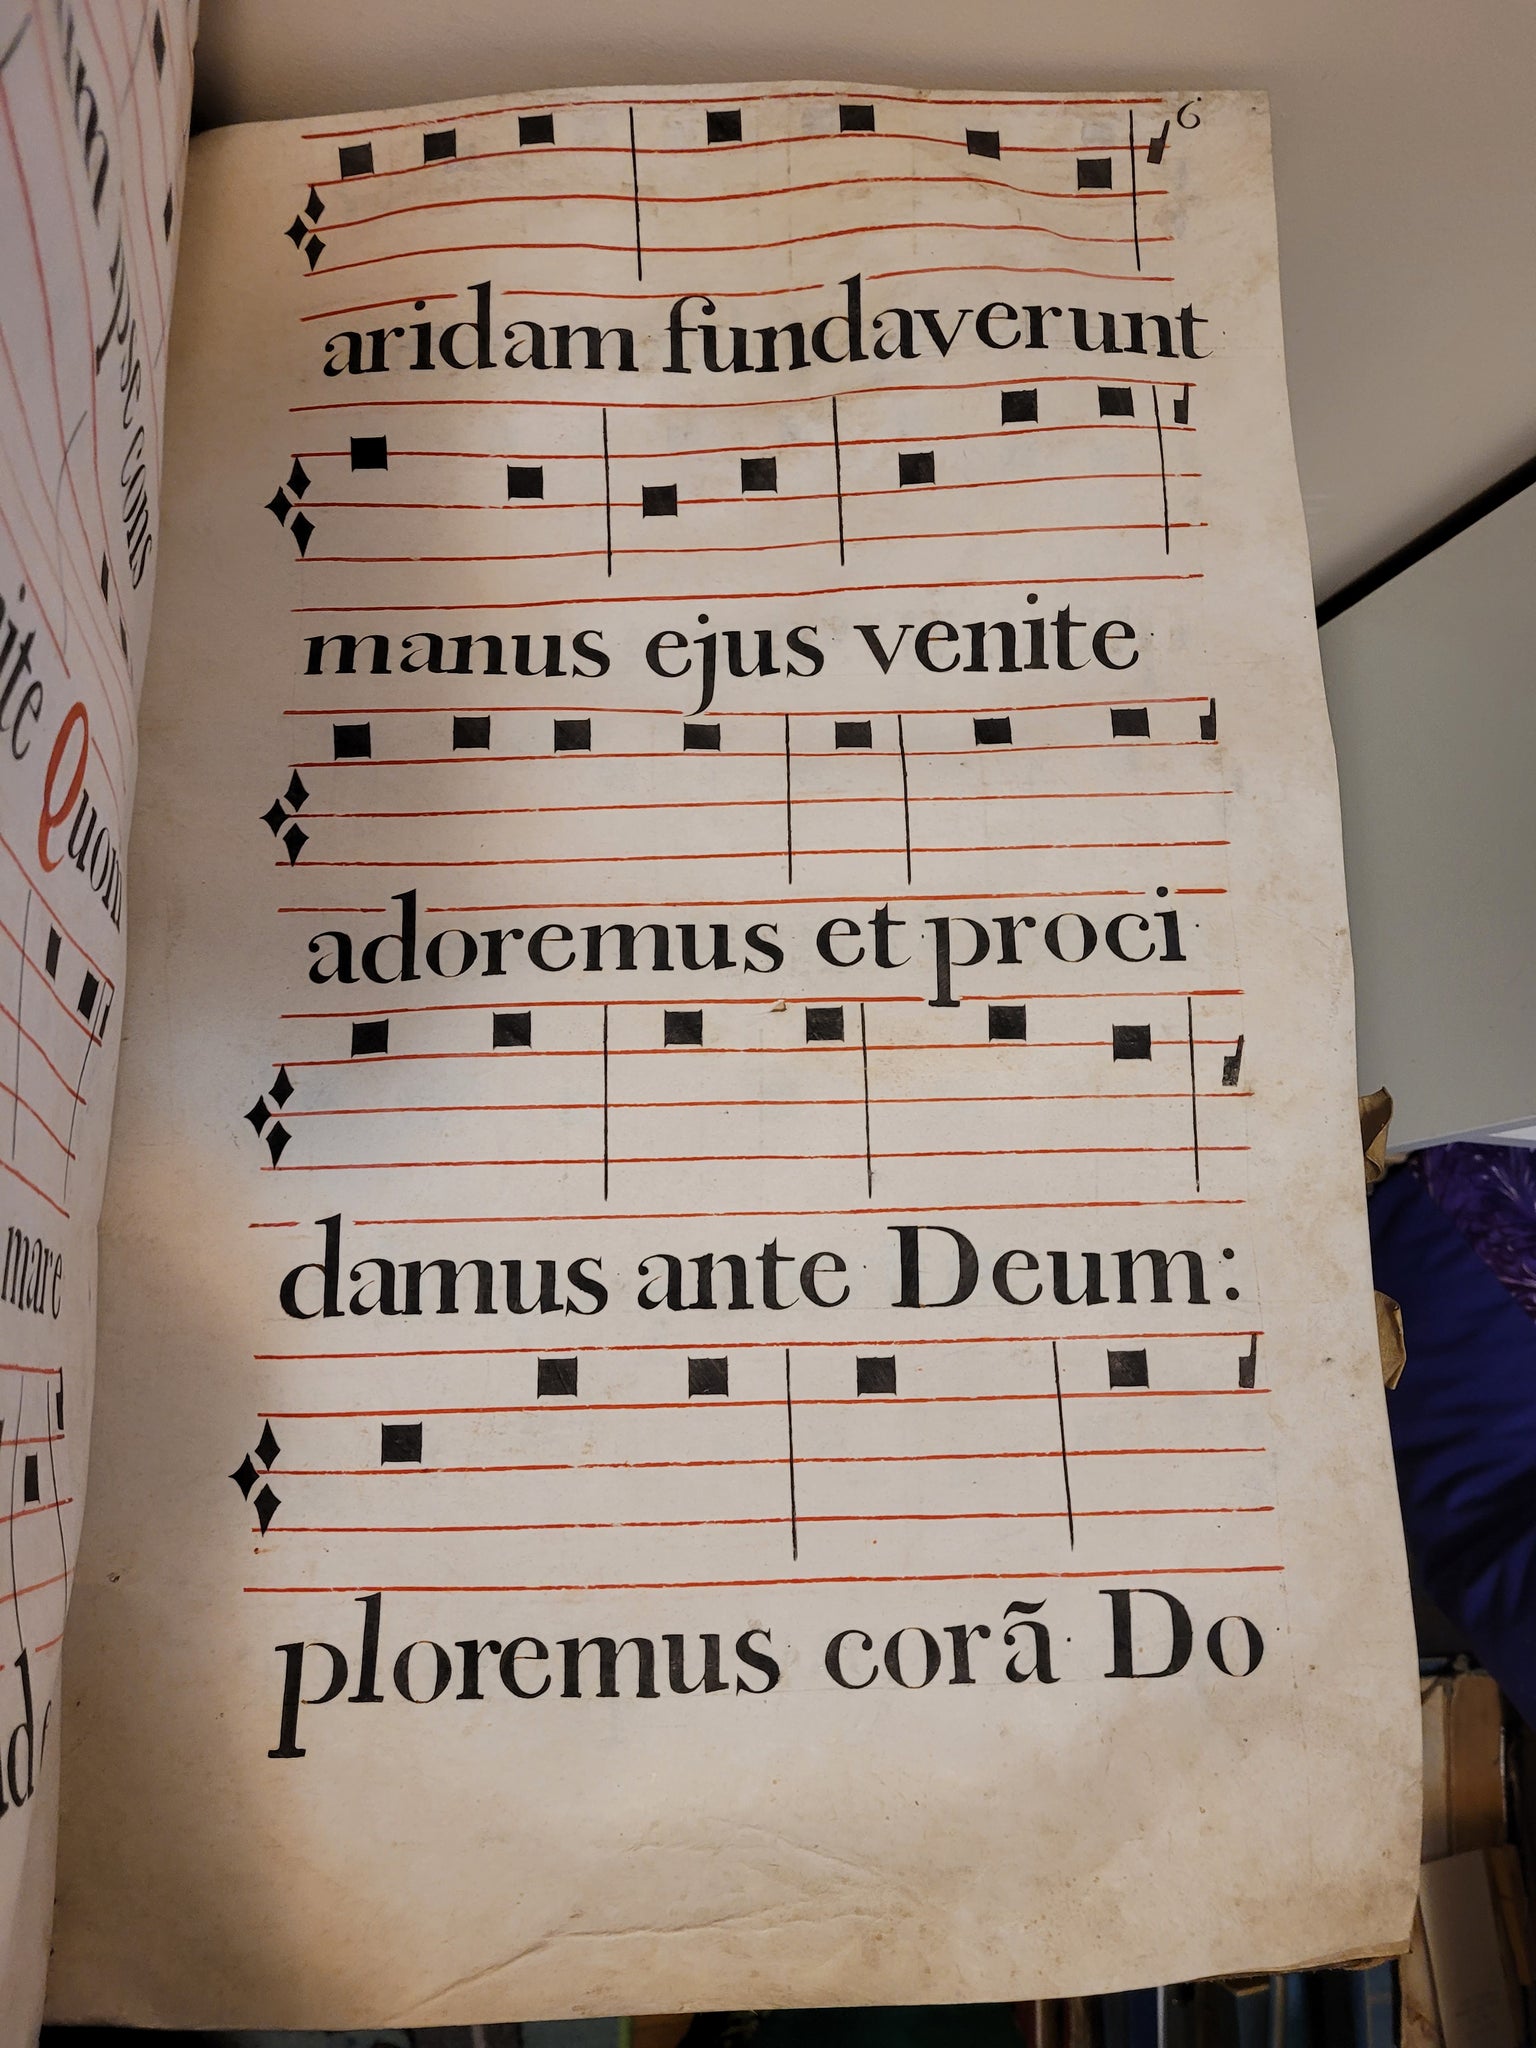 6
aridam fundaverunt
manus ejus venite
adoremus et proci
damus ante Deum:
ploremus corã Do
ite Quom
mare